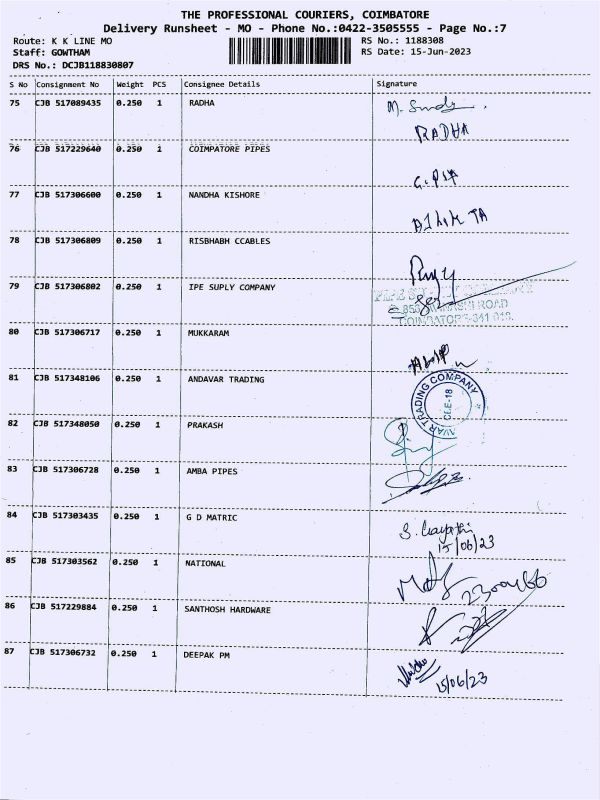 THE PROFESSIONAL COURIERS, COIMBATORE
Delivery Runsheet - MO - Phone No.:0422-3505555 - Page No.:7
Route: K K LINE MO
RS No.: 1188308
Staff: GOWTHAM
RS Date: 15-Jun-2023
DRS No.: DCJB118830807
S No Consignment No Weight PCS Consignee Details Signature
75 CJB 517089435 0.250 1 RADHA
RADHA
76 CJB 517229640 0.250 1 COIMPATORE PIPES
77 CJB 517306600 0.250 1 NANDHA KISHORE
78 CJB 517306809 0.250 1 RISBHABH CCABLES
79 CJB 517306802 0.250 1 IPE SUPLY COMPANY
80 CJB 517306717 0.250 1 MUKKARAM
81 CJB 517348106 0.250 1 ANDAVAR TRADING
TRADING COMPANY
CBE-18
82 CJB 517348050 0.250 1 PRAKASH
83 CJB 517306728 0.250 1 AMBA PIPES
84 CJB 517303435 0.250 1 G D MATRIC
15/06/23
85 CJB 517303562 0.250 1 NATIONAL
86 CJB 517229884 0.250 1 SANTHOSH HARDWARE
87 CJB 517306732 0.250 1 DEEPAK PM
15/06/23